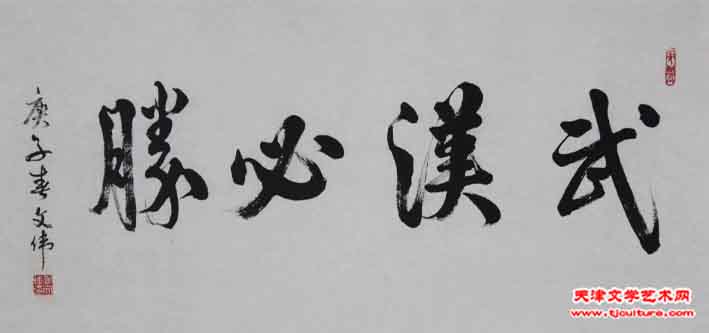 武漢必勝
庚子春文伟
天津文学艺术网
www.tjculture.com